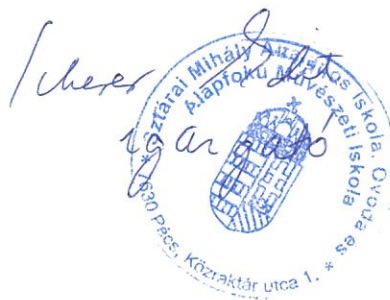 Scherer Edit
igazgató
* Bóztárai Mihály Általános Iskola, Óvoda és
Alapfokú Művészeti Iskola
7630 Pécs, Közraktár utca 1. *